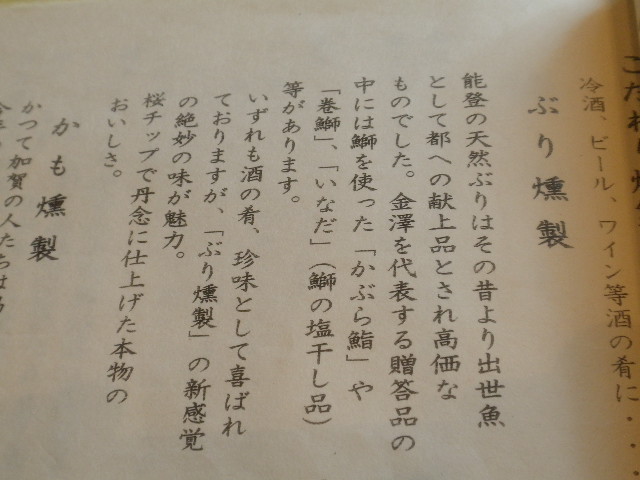 冷酒、ビール、ワイン等酒の肴に・・・
ぶり燻製
能登の天然ぶりはその昔より出世魚
として都への献上品とされ高価な
ものでした。金澤を代表する贈答品の
中には鰤を使った「かぶら鮨」や
「巻鰤」、「いなだ」（鰤の塩干し品）
等があります。
いずれも酒の肴、珍味として喜ばれ
ておりますが、「ぶり燻製」の新感覚
の絶妙の味が魅力。
桜チップで丹念に仕上げた本物の
おいしさ。
かも燻製
かつて加賀の人たちは